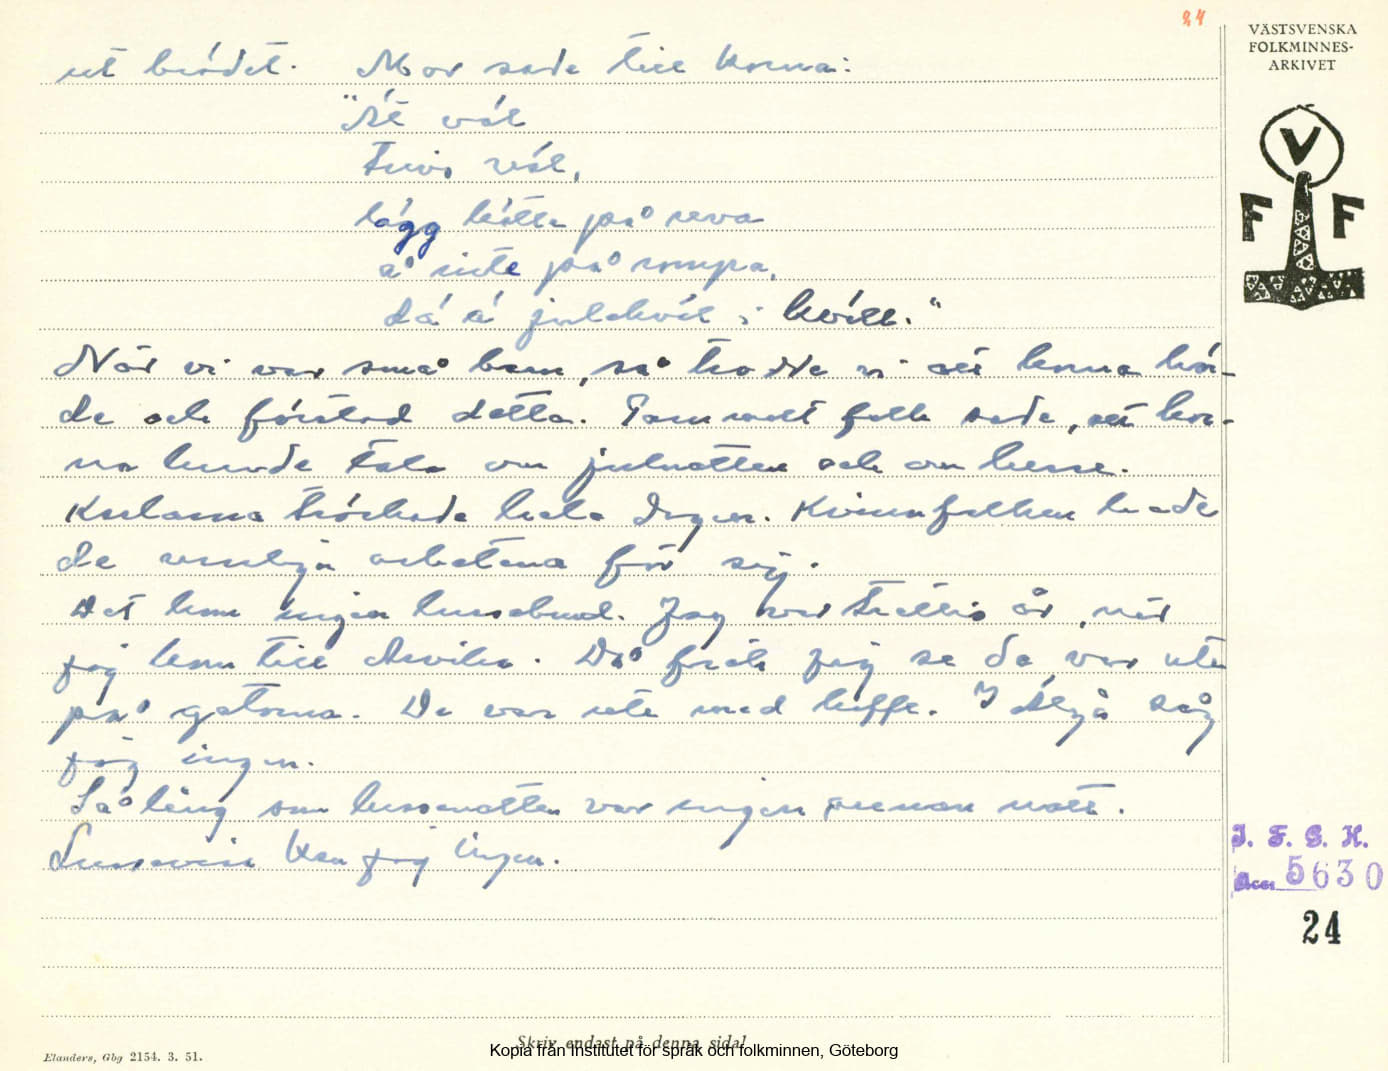 24
VÄSTSVENSKA
FOLKMINNES-
ARKIVET
V
F F
ut brödet. Mor sade till korna:
"Ät väl
Tuva väl,
lägg köttet på reva
å inte på rompa,
dä ä julekväl i kväll."
När vi var små barn, så trodde vi att korna hör-
de och förstod detta. Gammalt folk sade, att kor-
na kunde tala om julnatten och om lusse.
Karlarna tröskade hela dagen. Kvinnfolken hade
de vanliga arbetena för sig.
Det kom ingen lussebrud. Jag var trettio år, när
jag kom till Arvika. Då fick jag se de var ute
på gatorna. De var ute med kaffe. I Älgå såg
jag ingen.
Så lång som lussenatten var ingen annan natt.
Lussevisa kan jag ingen.
I. F. G. H.
Acc. 5630
24
Skriv endast på denna sida!
Kopia från Institutet för språk och folkminnen, Göteborg
Elanders, Gbg 2154. 3. 51.